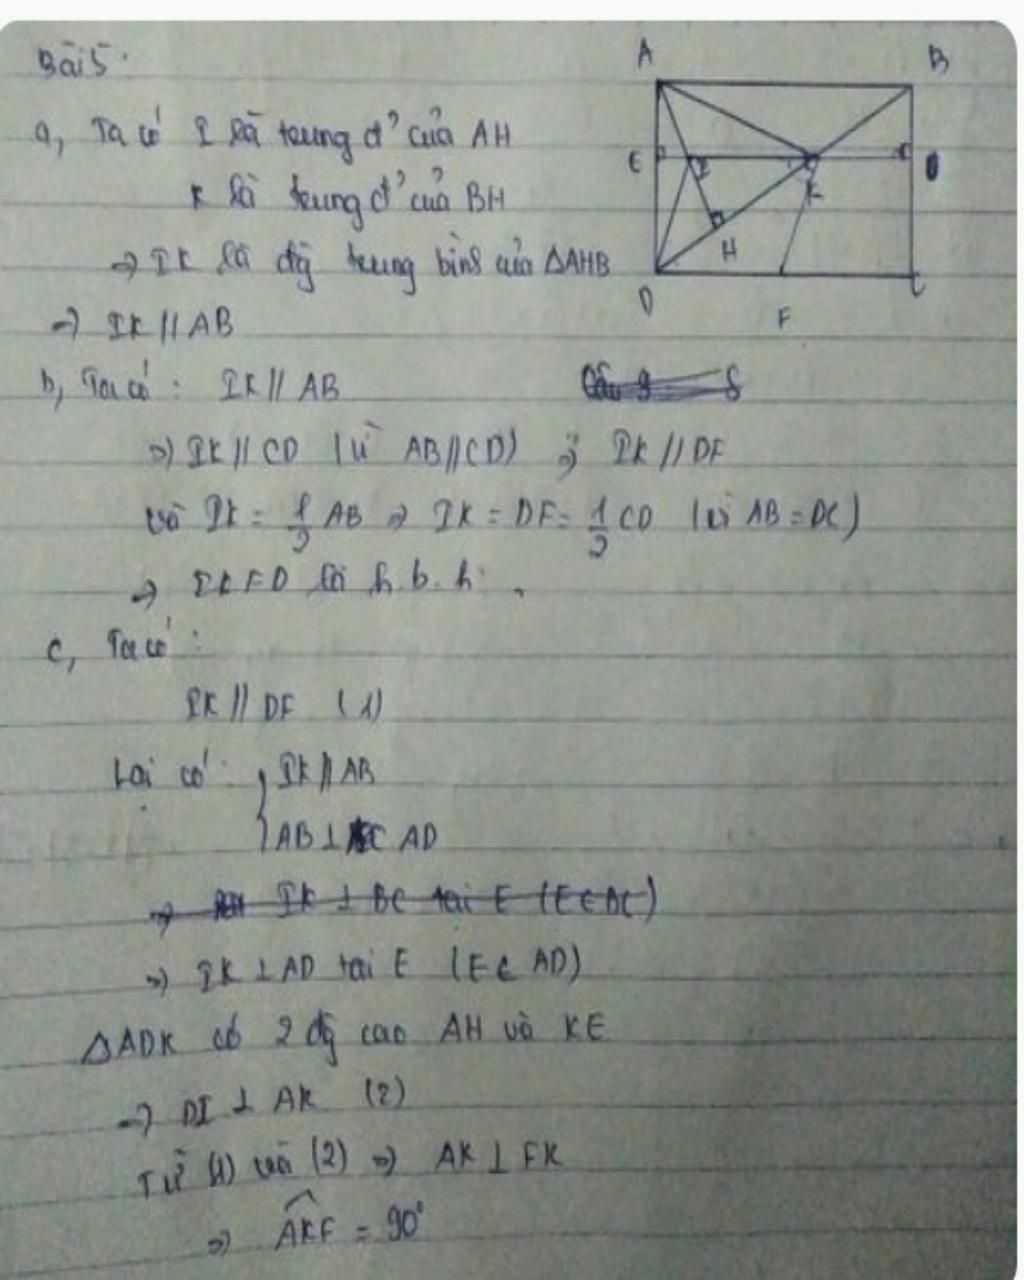 Bài 5.
A B
a, Ta có I là trung đ' của AH
E I K
K là trung đ' của BH
H
⇒ IK là đg trung bình của ΔAHB
D F C
⇒ IK // AB
b, Ta có : IK // AB
⇒ IK // CD (vì AB // CD) ⇒ IK // DF
và IK = 1/2 AB ⇒ IK = DF = 1/2 CD (vì AB = DC)
⇒ IKFD là h.b.h.
c, Ta có :
IK // DF (1)
Lại có : { IK // AB
AB ⊥ AD
⇒ IK ⊥ BC tại E (E ∈ BC)
⇒ IK ⊥ AD tại E (E ∈ AD)
ΔADK có 2 đg cao AH và KE
⇒ DI ⊥ AK (2)
Từ (1) và (2) ⇒ AK ⊥ FK
⇒ AKF = 90°